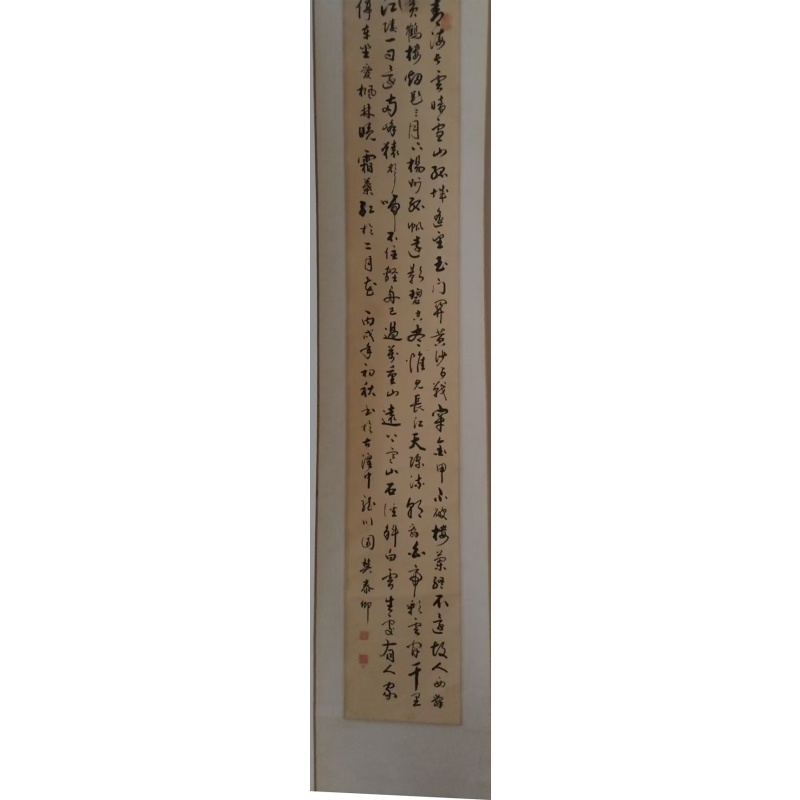 青海长雲暗雪山孤城遥望玉门関黄沙百戰穿金甲不破樓蘭終不還故人西辞
黄鶴樓烟花三月下揚州孤帆遠影碧空盡惟見長江天際流朝辞白帝彩雲間千里
江陵一日還两岸猿声啼不住輕舟已過萬重山遠上寒山石径斜白雲生處有人家
停车坐愛楓林晚霜葉红於二月花 丙戌年初秋书於古漢中龍川園樊泰卿